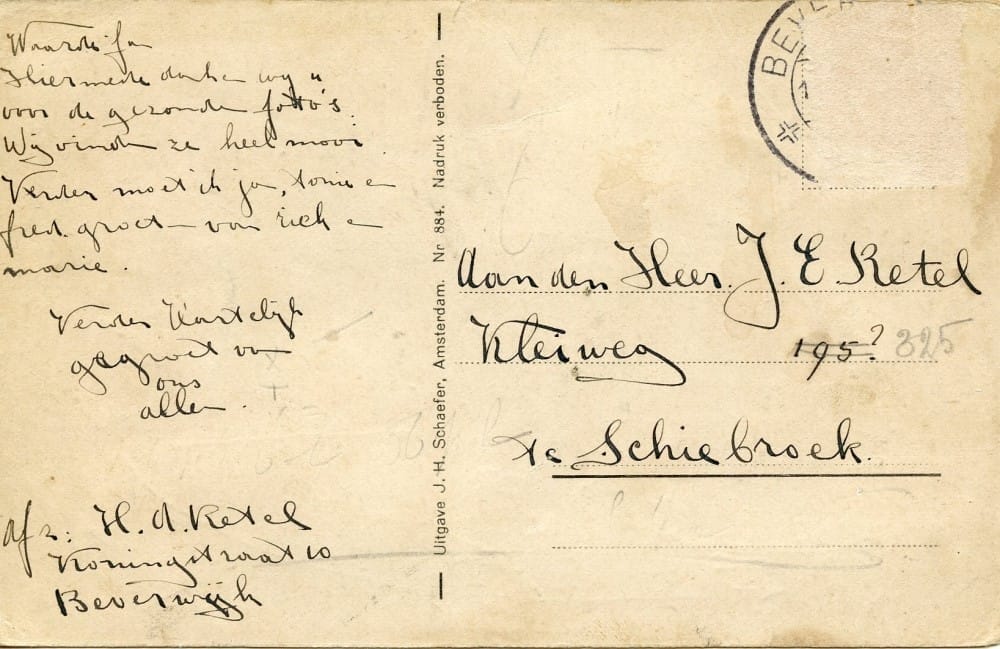 Waarde Jan
Hiermede danken wij u
voor de gezonden foto's
Wij vinden ze heel mooi
Verder moet ik jan, tonie en
fred. groeten van riek en
marie.
Verder Hartelijk
gegroet van
ons
allen.
afz: H. A. Ketel
Koningstraat 10
Beverwijk
Uitgave J. H. Schaefer, Amsterdam. Nr 884. Nadruk verboden.
BEVER
Aan den Heer. J. E. Ketel
Kleiweg 195? 325
te Schiebroek.